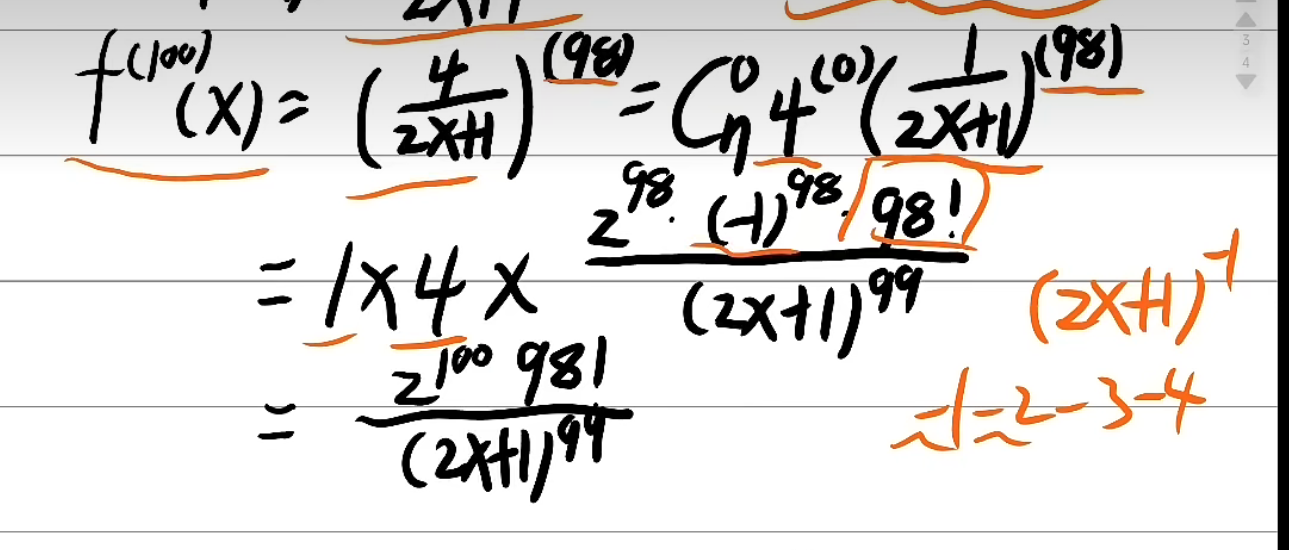 2x+1
f^(100)(x) = (4/(2x+1))^(98) = C_n^0 4^(0) (1/(2x+1))^(98)
= 1 × 4 × (2^98 · (-1)^98 · 98!)/((2x+1)^99)
(2x+1)^-1
= (2^100 98!)/((2x+1)^99)
-1 -2 -3 -4
3
4